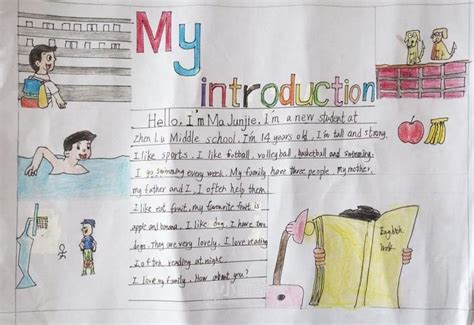 My
introduction
Hello, I'm Ma Junjie. I'm a new student at
Zhen Lu Middle school. I'm 14 years old. I'm tall and strong.
I like sports. I like football, volleyball, basketball and swimming.
I go swimming every week. My family have three people. My mother,
my father and I. I often help them.
I like eat fruit. my favourite fruit is
apple and banana. I like dog. I have two
dogs. They are very lovely. I love reading.
I often reading at night.
I love my family. How about you?
English